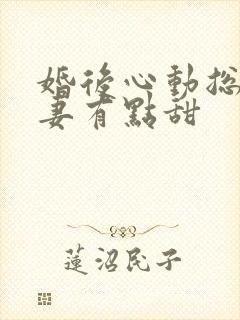 婚後心動總
妻有點甜
蓮沼民子